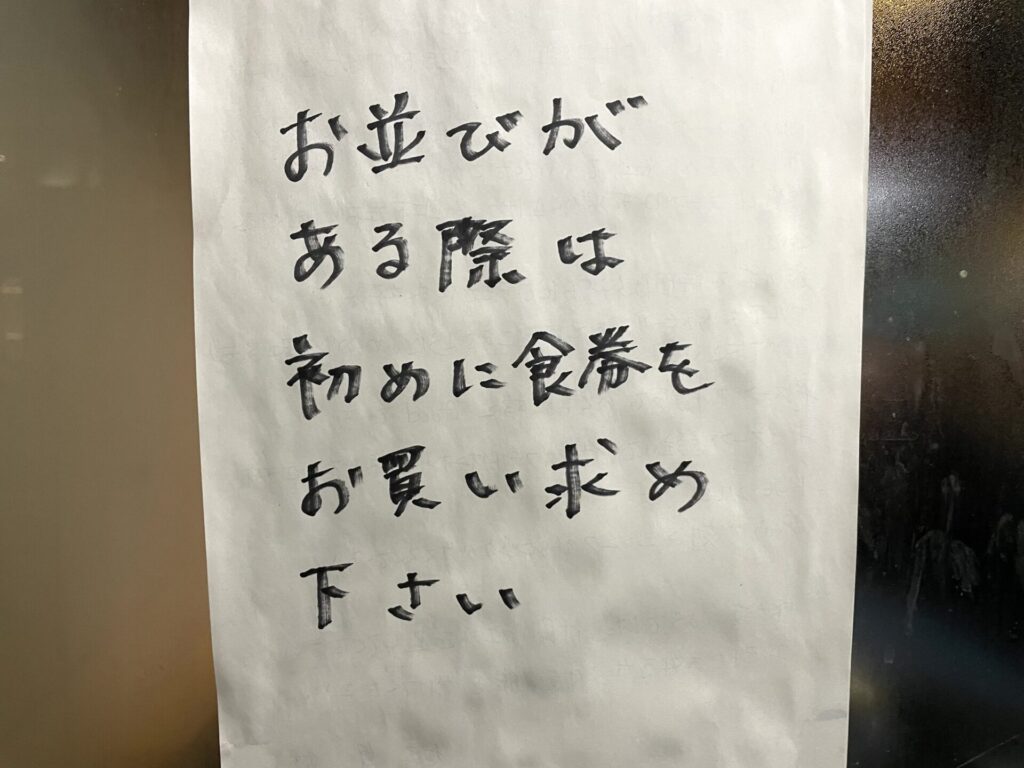 お並びが
ある際は
初めに食券を
お買い求め
下さい